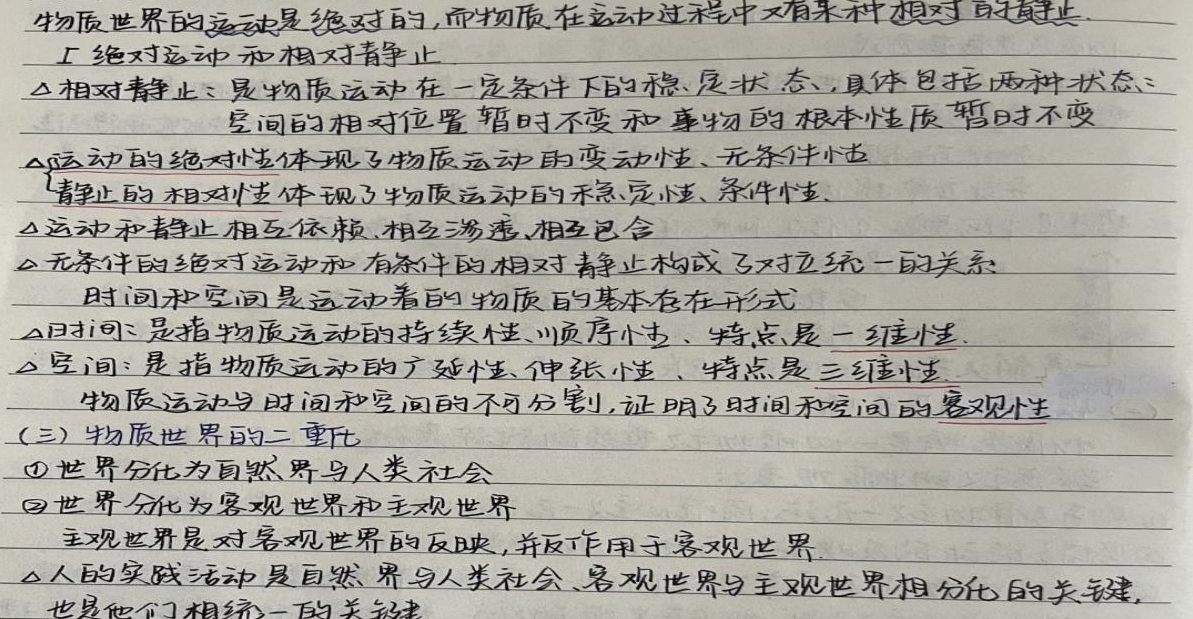 物质世界的运动是绝对的,而物质在运动过程中又有某种相对的静止.
[绝对运动和相对静止
△相对静止:是物质运动在一定条件下的稳定状态,具体包括两种状态:
空间的相对位置暂时不变和事物的根本性质暂时不变
△{运动的绝对性体现了物质运动的变动性、无条件性
静止的相对性体现了物质运动的稳定性、条件性.
△运动和静止相互依赖、相互渗透、相互包含
△无条件的绝对运动和有条件的相对静止构成了对立统一的关系
时间和空间是运动着的物质的基本存在形式
△时间:是指物质运动的持续性、顺序性、特点是一维性.
△空间:是指物质运动的广延性、伸张性、特点是三维性
物质运动与时间和空间的不可分割,证明了时间和空间的客观性
(三)物质世界的二重化
①世界分化为自然界与人类社会
②世界分化为客观世界和主观世界
主观世界是对客观世界的反映,并反作用于客观世界
△人的实践活动是自然界与人类社会、客观世界与主观世界相分化的关键,
也是他们相统一的关键